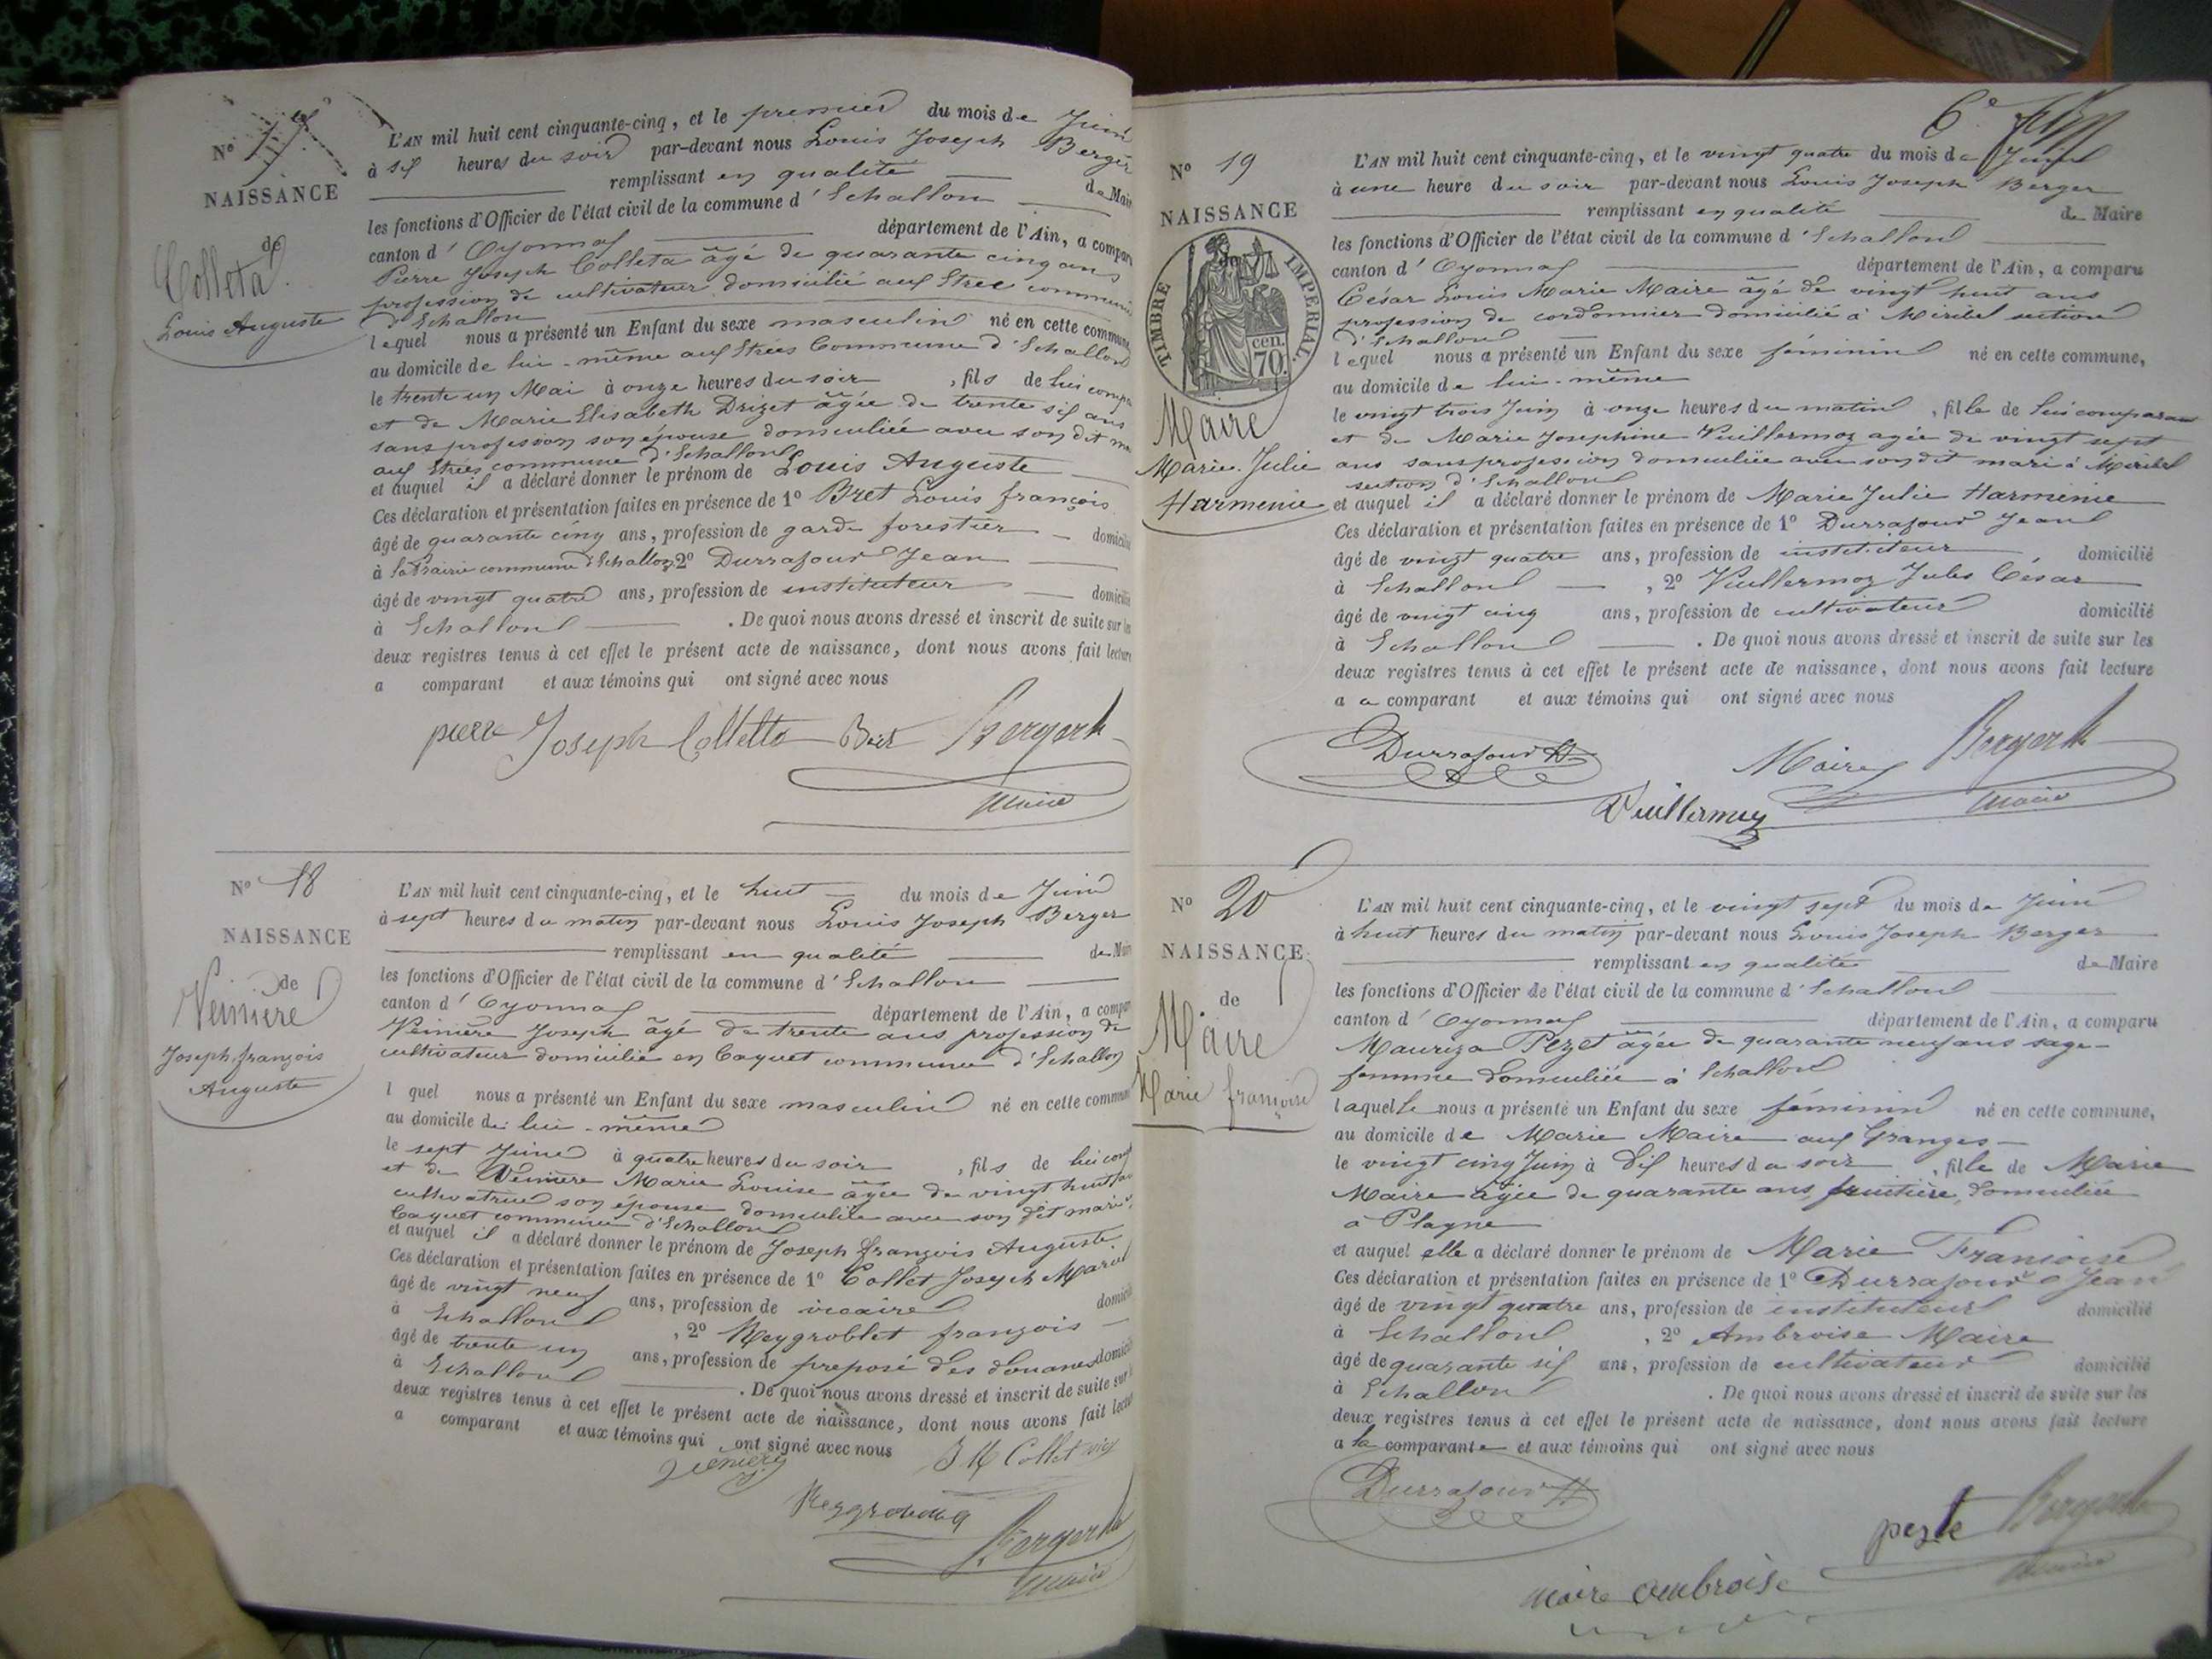 N° 17
NAISSANCE
de
Colleta
Louis Auguste
L'AN mil huit cent cinquante-cinq, et le premier du mois de Juin
à six heures du soir par-devant nous Louis Joseph Berger
remplissant en qualité de Maire
les fonctions d'Officier de l'état civil de la commune d'Echallon
canton d'Oyonnax département de l'Ain, a comparu
Pierre Joseph Colleta âgé de quarante cinq ans
profession de cultivateur domicilié aux Strées commune
d'Echallon
lequel nous a présenté un Enfant du sexe masculin né en cette commune,
au domicile de lui-même aux Strées Commune d'Echallon
le trente un Mai à onze heures du soir, fils de lui comp
et de Marie Elisabeth Drizet âgée de trente six ans
sans profession son épouse domiciliée avec son dit ma
aux Strées commune d'Echallon
et auquel il a déclaré donner le prénom de Louis Auguste
Ces déclaration et présentation faites en présence de 1° Bret Louis françois
âgé de quarante cinq ans, profession de garde forestier domicilié
à la Prairie commune d'Echallon 2° Durrafour Jean
âgé de vingt quatre ans, profession de instituteur domicilié
à Echallon . De quoi nous avons dressé et inscrit de suite sur les
deux registres tenus à cet effet le présent acte de naissance, dont nous avons fait lecture
a comparant et aux témoins qui ont signé avec nous
pierre Joseph Colletta Bret Berger
maire
N° 18
NAISSANCE
de
Veinière
Joseph françois
Auguste
L'AN mil huit cent cinquante-cinq, et le huit du mois de Juin
à sept heures du matin par-devant nous Louis Joseph Berger
remplissant en qualité de Maire
les fonctions d'Officier de l'état civil de la commune d'Echallon
canton d'Oyonnax département de l'Ain, a comparu
Veinière Joseph âgé de trente ans profession de
cultivateur domicilié en Caquet commune d'Echallon
l quel nous a présenté un Enfant du sexe masculin né en cette commune
au domicile de lui-même
le sept Juin à quatre heures du soir, fils de lui comp
et de Veinière Marie Louise âgée de vingt huit ans
cultivatrice son épouse domiciliée avec son dit mari
Caquet commune d'Echallon
et auquel il a déclaré donner le prénom de Joseph françois Auguste
Ces déclaration et présentation faites en présence de 1° Collet Joseph Marie
âgé de vingt neuf ans, profession de vicaire domicilié
à Echallon, 2° Reygroblet françois
âgé de trente un ans, profession de préposé des douanes domicilié
à Echallon . De quoi nous avons dressé et inscrit de suite sur
deux registres tenus à cet effet le présent acte de naissance, dont nous avons fait lecture
a comparant et aux témoins qui ont signé avec nous
J M Collet vic
Berger
maire
6e
N° 19
NAISSANCE
de
TIMBRE IMPERIAL
70 cen.
Maire
Marie Julie
Harmenie
L'AN mil huit cent cinquante-cinq, et le vingt quatre du mois de Juin
à une heure du soir par-devant nous Louis Joseph Berger
remplissant en qualité de Maire
les fonctions d'Officier de l'état civil de la commune d'Echallon
canton d'Oyonnax département de l'Ain, a comparu
César Louis Marie Maire âgé de vingt huit ans
profession de cordonnier domicilié à Miribel section
d'Echallon
lequel nous a présenté un Enfant du sexe féminin né en cette commune,
au domicile de lui-même
le vingt trois Juin à onze heures du matin, fille de lui comparant
et de Marie Josephine Vuillermoz agée de vingt sept
ans sans profession domiciliée avec son dit mari à Miribel
section d'Echallon
et auquel il a déclaré donner le prénom de Marie Julie Harmenie
Ces déclaration et présentation faites en présence de 1° Durrafour Jean
âgé de vingt quatre ans, profession de instituteur, domicilié
à Echallon, 2° Vuillermoz Jules César
âgé de vingt cinq ans, profession de cultivateur domicilié
à Echallon . De quoi nous avons dressé et inscrit de suite sur les
deux registres tenus à cet effet le présent acte de naissance, dont nous avons fait lecture
a u comparant et aux témoins qui ont signé avec nous
Durrafour Maire Berger
Vuillermoz maire
N° 20
NAISSANCE
de
Maire
Marie françoise
L'AN mil huit cent cinquante-cinq, et le vingt sept du mois de Juin
à huit heures du matin par-devant nous Louis Joseph Berger
remplissant en qualité de Maire
les fonctions d'Officier de l'état civil de la commune d'Echallon
canton d'Oyonnax département de l'Ain, a comparu
Mauriza Pezet âgée de quarante neuf ans sage-
femme domiciliée à Echallon
laquelle nous a présenté un Enfant du sexe féminin né en cette commune,
au domicile de Marie Maire aux Granges
le vingt cinq Juin à dix heures du soir, fille de Marie
Maire âgée de quarante ans, fruitière, domiciliée
à Plagne
et auquel elle a déclaré donner le prénom de Marie Françoise
Ces déclaration et présentation faites en présence de 1° Durrafour Jean
âgé de vingt quatre ans, profession de instituteur domicilié
à Echallon, 2° Ambroise Maire
âgé de quarante six ans, profession de cultivateur domicilié
à Echallon . De quoi nous avons dressé et inscrit de suite sur les
deux registres tenus à cet effet le présent acte de naissance, dont nous avons fait lecture
a la comparante et aux témoins qui ont signé avec nous
Durrafour
Berger
maire ambroise maire